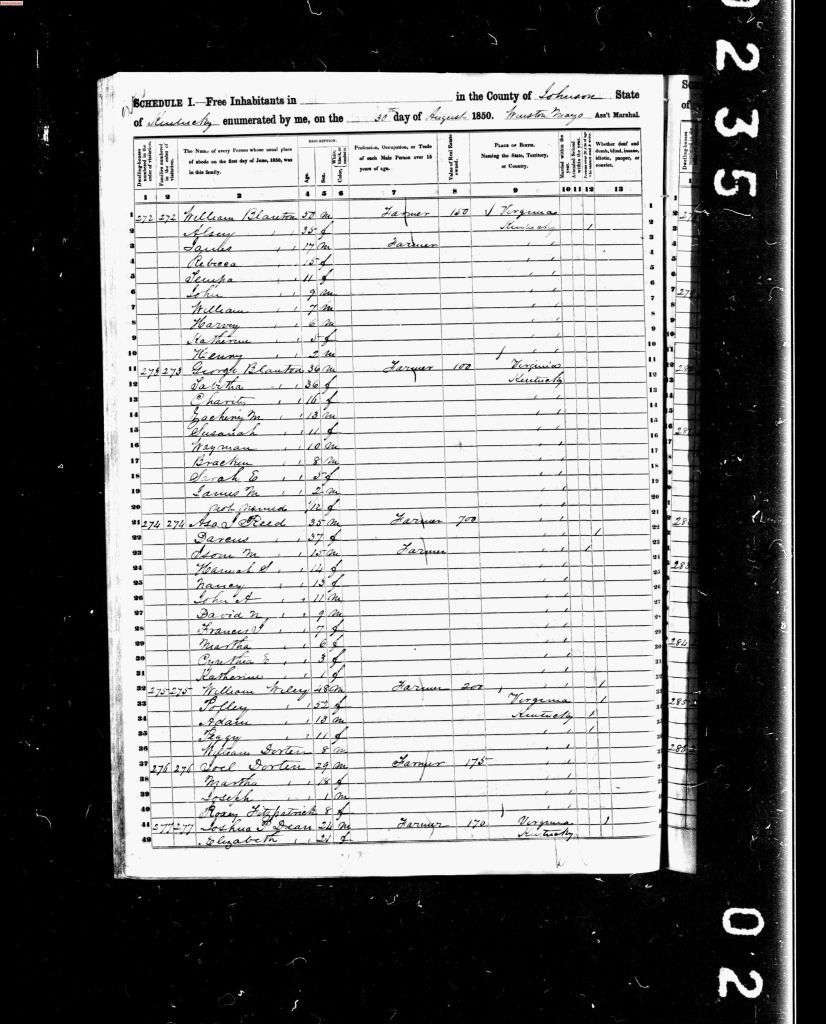 SCHEDULE I.—Free Inhabitants in in the County of Johnson State
of Kentucky enumerated by me, on the 30th day of August 1850. Winston Mayo Ass't Marshal.
Dwelling-houses numbered in the order of visitation. Families numbered in the order of visitation. The Name of every Person whose usual place of abode on the first day of June, 1850, was in this family. DESCRIPTION. Age. Sex. White, black, or mulatto. Color, Profession, Occupation, or Trade of each Male Person over 15 years of age. Value of Real Estate owned. PLACE OF BIRTH. Naming the State, Territory, or Country. Married within the year. Attended School within the year. Whether deaf and dumb, blind, insane, idiotic, pauper, or convict.
1 2 3 4 5 6 7 8 9 10 11 12 13
1 272 272 William Blanton 50 m Farmer 150 Virginia 1
2 Alsey " " 35 f Kentucky 1 2
3 James " " 17 m Farmer " " 3
4 Rebecca " " 15 f " " 4
5 " " 11 f " " 5
6 John " " 9 m " " 6
7 William " " 7 m " " 7
8 Harvey " " 6 m " " 8
9 Katherine " " 5 f " " 9
10 Henny " " 2 m " " 10
11 273 273 George Blanton 36 m Farmer 100 Virginia 11
12 Tabitha " " 36 f Kentucky 12
13 Charity " " 16 f " " 13
14 M " " 13 m " " 14
15 Susanah " " 11 f " " 15
16 Wayman " " 10 m " " 16
17 Bracken " " 8 m " " 17
18 Sarah E " " 5 f " " 18
19 James M " " 2 m " " 19
20 not named " /12 f " " 20
21 274 274 Asa Reed 35 m Farmer 700 " " 21
22 Darcus " " 37 f " " 1 22
23 Isom M " " 15 m Farmer " " 1 23
24 Hannah S " " 14 f " " 24
25 Nancy " " 13 f " " 25
26 John A " " 11 m " " 26
27 David N " " 9 m " " 27
28 Francis " " 7 f " " 28
29 Martha " " 6 f " " 29
30 Cynthia E " " 3 f " " 30
31 Katherine " " 1 f " " 31
32 275 275 William Wiley 48 m Farmer 200 " " 1 32
33 Polley " " 52 f Virginia 1 33
34 Adam " " 13 m Kentucky 1 34
35 Peggy " " 11 f " " 1 35
36 William Dorten 8 m " " 36
37 276 276 Joel Dorten 29 m Farmer 175 " " 37
38 Martha " " 18 f " " 38
39 Joseph " " 1 m " " 39
40 Roxey Fitzpatrick 8 f " " 40
41 277 277 Joshua P Dean 24 m Farmer 170 Virginia 1 41
42 Elizabeth " " 21 f Kentucky
0235
02